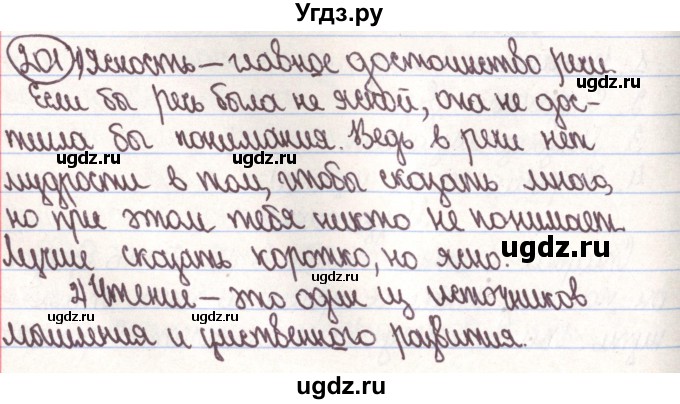 Угдз.ру
201 1) Ясность – главное достоинство речи.
Если бы речь была не ясной, она не дос-
тигла бы понимания. Ведь в речи нет
ugdz.ru ugdz.ru
мудрости в том, чтобы сказать много,
но при этом тебя никто не понимает.
ugdz.ru
Лучше сказать коротко, но ясно.
ugdz.ru
2) Чтение – это один из источников
ugdz.ru ugdz.ru
мышления и умственного развития.
ugdz.ru